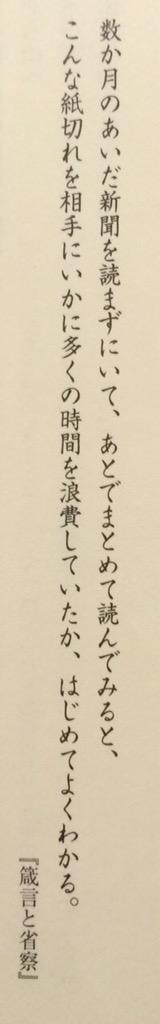 数か月のあいだ新聞を読まずにいて、あとでまとめて読んでみると、
こんな紙切れを相手にいかに多くの時間を浪費していたか、はじめてよくわかる。
『箴言と省察』